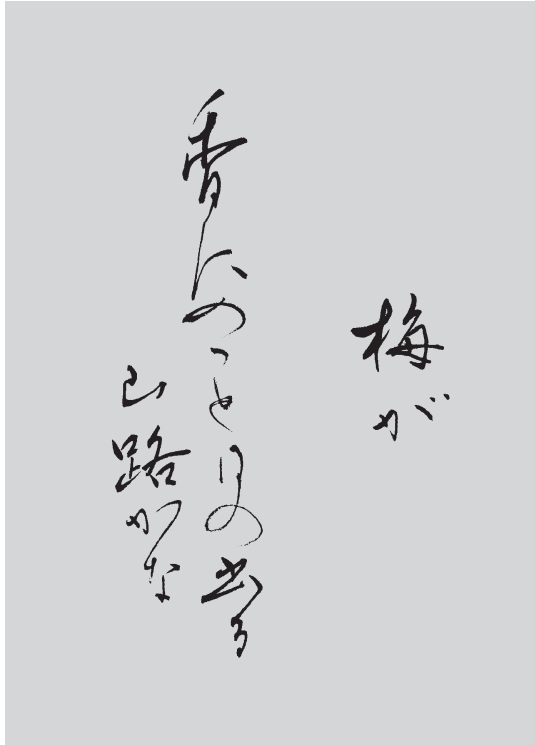 梅が
香にのっと日の出る
山路かな